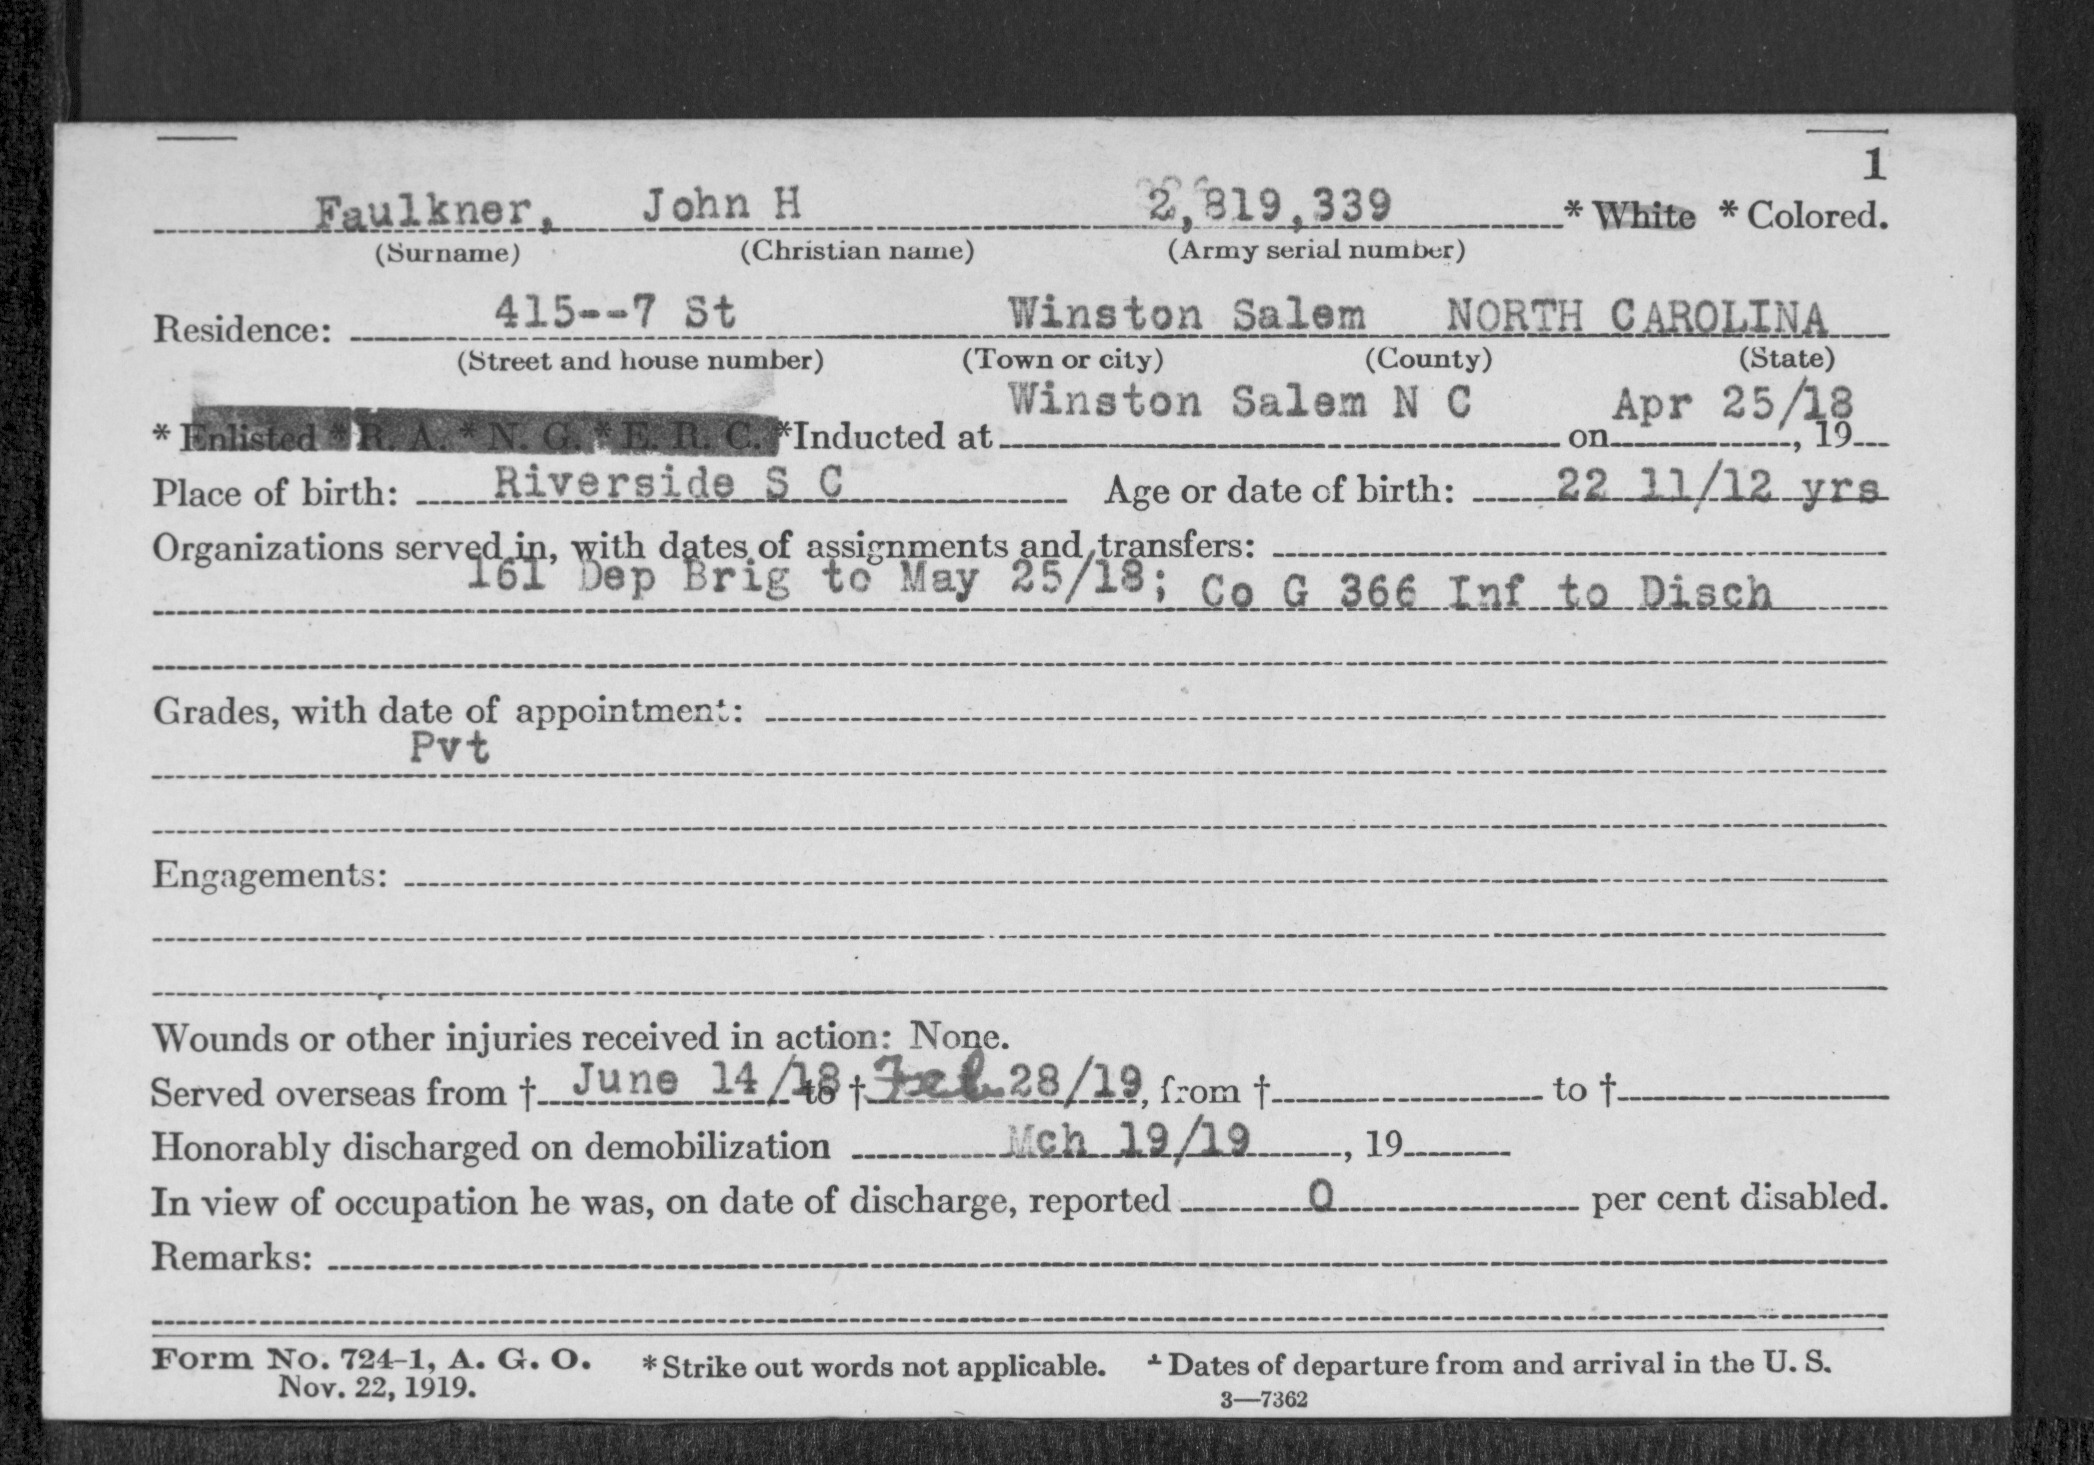 1
Faulkner, John H 2,819,339 * White * Colored.
(Surname) (Christian name) (Army serial number)
Residence: 415--7 St Winston Salem NORTH CAROLINA
(Street and house number) (Town or city) (County) (State)
Winston Salem N C Apr 25/18
* Enlisted * R. A. * N. G. * E. R. C. *Inducted at on , 19
Place of birth: Riverside S C Age or date of birth: 22 11/12 yrs
Organizations served in, with dates of assignments and transfers:
161 Dep Brig to May 25/18; Co G 366 Inf to Disch
Grades, with date of appointment:
Pvt
Engagements:
Wounds or other injuries received in action: None.
Served overseas from † June 14/18 to † Feb 28/19, from † to †
Honorably discharged on demobilization Mch 19/19 , 19
In view of occupation he was, on date of discharge, reported 0 per cent disabled.
Remarks:
Form No. 724-1, A. G. O. * Strike out words not applicable. † Dates of departure from and arrival in the U. S.
Nov. 22, 1919. 3—7362